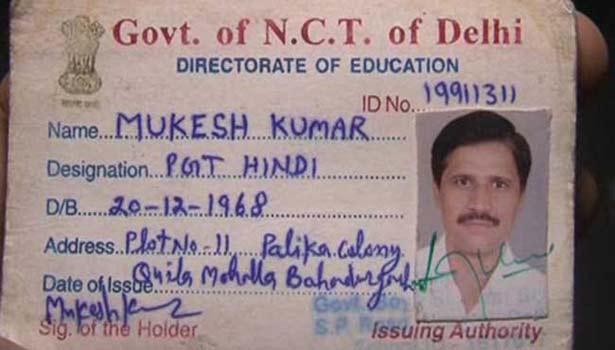 Govt. of N.C.T. of Delhi
DIRECTORATE OF EDUCATION
ID No. 19911311
Name...MUKESH KUMAR
Designation...PGT HINDI
D/B...20-12-1968
Address...Plot No.-11 Palika Colony
Date of Issue Quila Mohalla Bahadurgarh
Mukesh Kumar
Sig. of the Holder
Issuing Authority